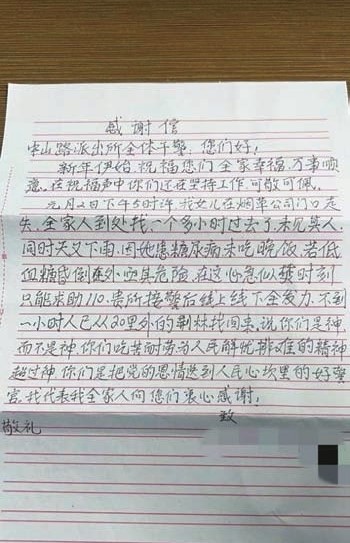 感谢信
中山路派出所全体干警，您们好！
新年伊始，祝福您们全家幸福，万事顺
意。在祝福声中你们还在坚持工作，可敬可佩。
元月2日下午5时许，我女儿在烟草公司门口走
失，全家人到处找，一个多小时过去了，未见其人，
同时天又下雨，因她患糖尿病未吃晚饭，若低
血糖昏倒在外而其危险，在这心急似箭时刻
只能求助110，贵所接警后线上线下全发力，不到
一小时人已从20里外的荆林找回来，说你们是神，
而不是神，你们吃苦耐劳为人民解忧排难的精神
超过神，你们是把党的恩情送到人民心坎里的好警
官，我代表我全家人向您们衷心感谢！
致
敬礼